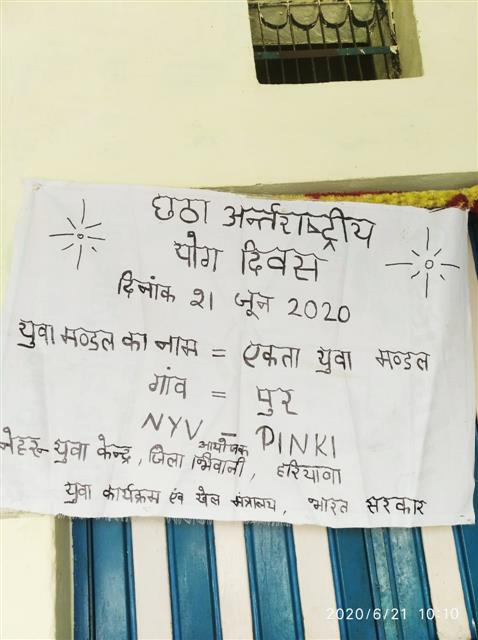 छठा अर्न्तराष्ट्रीय
योग दिवस
दिनांक 21 जून 2020
युवा मण्डल का नाम = एकता युवा मण्डल
गांव = पुर
NYV - PINKI
आयोजक
नेहरू युवा केन्द्र, जिला भिवानी, हरियाणा
युवा कार्यक्रम एंव खेल मंत्रालय, भारत सरकार
2020/6/21 10:10